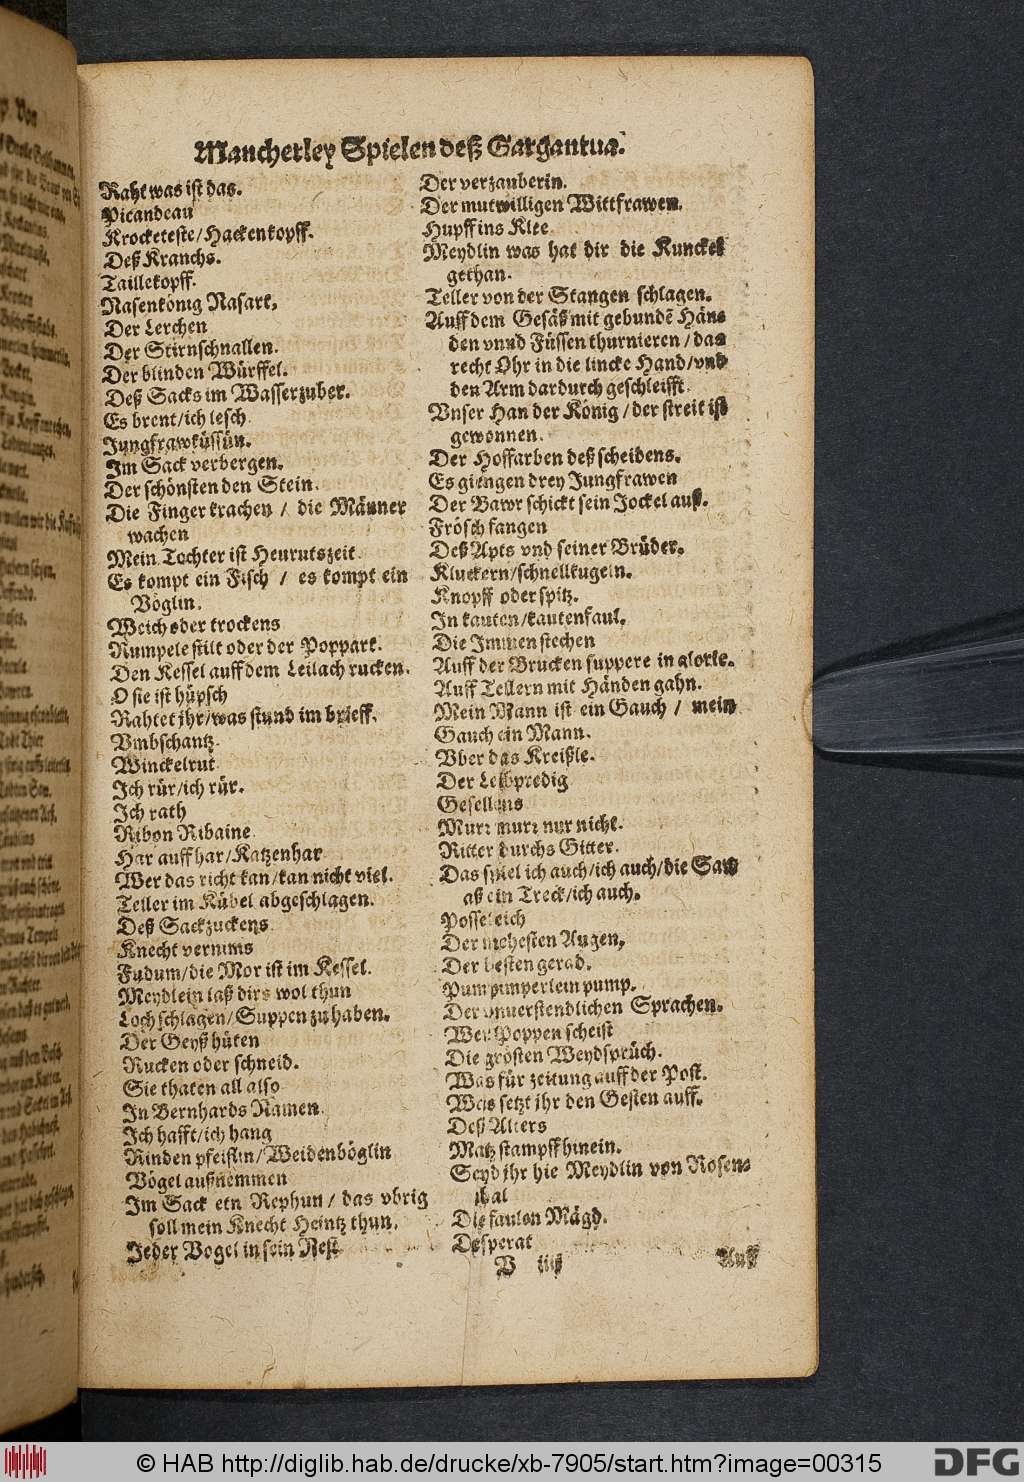 Mancherley Spielen deß Gargantua.
Raht was ist das.
Picandeau
Krocketeste/Hackenkopff.
Deß Kranchs.
Taillekopff.
Nasenkönig Nasart,
Der Lerchen
Der Stirnschnallen.
Der blinden Würffel.
Deß Sacks im Wasserzuber.
Es brent/ich lesch
Jungfrawküssün.
Im Sack verbergen.
Der schönsten den Stein.
Die Finger krachen / die Männer
wachen
Mein Tochter ist Heurutszeit
Es kompt ein Fisch / es kompt ein
Vöglin.
Weich oder trockens
Rumpele stilt oder der Poppart.
Den Kessel auff dem Leilach rucken.
O sie ist hüpsch
Rahtet jhr/was stund im brieff.
Vmbschantz
Winckelrut
Ich rür/ich rür.
Ich rath
Ribon Ribaine
Har auff har/Katzenhar
Wer das richt kan/kan nicht viel.
Teller im Kübel abgeschlagen.
Deß Sackzuckens
Knecht vernims
Fudum/die Mor ist im Kessel.
Meydlein laß dirs wol thun
Loch schlagen/Suppen zu haben.
Der Geyß hüten
Rucken oder schneid.
Sie thaten all also
In Bernhards Namen
Ich hafft/ich hang
Rinden pfeifflin/Weidenböglin
Vögel außnemmen
Im Sack ein Rephun / das vbrig
soll mein Knecht Heintz thun.
Jeder Vogel in sein Nest
Der verzauberin.
Der mutwilligen Wittfrawen.
Hupff ins Klee
Meydlin was hat dir die Kunckel
gethan.
Teller von der Stangen schlagen.
Auff dem Gesäß mit gebundẽ Hän-
den vnnd Füssen thurnieren / das
recht Ohr in die lincke Hand/vnd
den Arm dardurch geschleifft
Vnser Han der König / der streit ist
gewonnen.
Der Hoffarben deß scheidens.
Es giengen drey Jungfrawen
Der Bawr schickt sein Jockel auß.
Frösch fangen
Deß Apts vnd seiner Brüder.
Kluckern/schnellkugeln.
Knopff oder spitz.
In kauten/kautenfaul.
Die Immen stechen
Auff der Brucken suppere in glorie.
Auff Tellern mit Händen gahn.
Mein Mann ist ein Gauch / mein
Gauch ein Mann.
Vber das Kreißle.
Der Leibpredig
Gesellens
Murr murr nur nicht.
Ritter durchs Gitter.
Das spiel ich auch/ich auch/die Saw
aß ein Treck/ich auch.
Posseleich
Der mehesten Augen,
Der besten gerad.
Pumpimperlein pump.
Der vnuerstendlichen Sprachen.
Wer Poppen scheist
Die grösten Weydsprüch.
Was für zeitung auff der Post.
Was setzt jhr den Gesten auff.
Deß Alters
Matz stampff hinein.
Seyd jhr hie Meydlin von Rosen-
thal
Die faulen Mägd.
Desperat
V iiij
Auff
© HAB http://diglib.hab.de/drucke/xb-7905/start.htm?image=00315
DFG